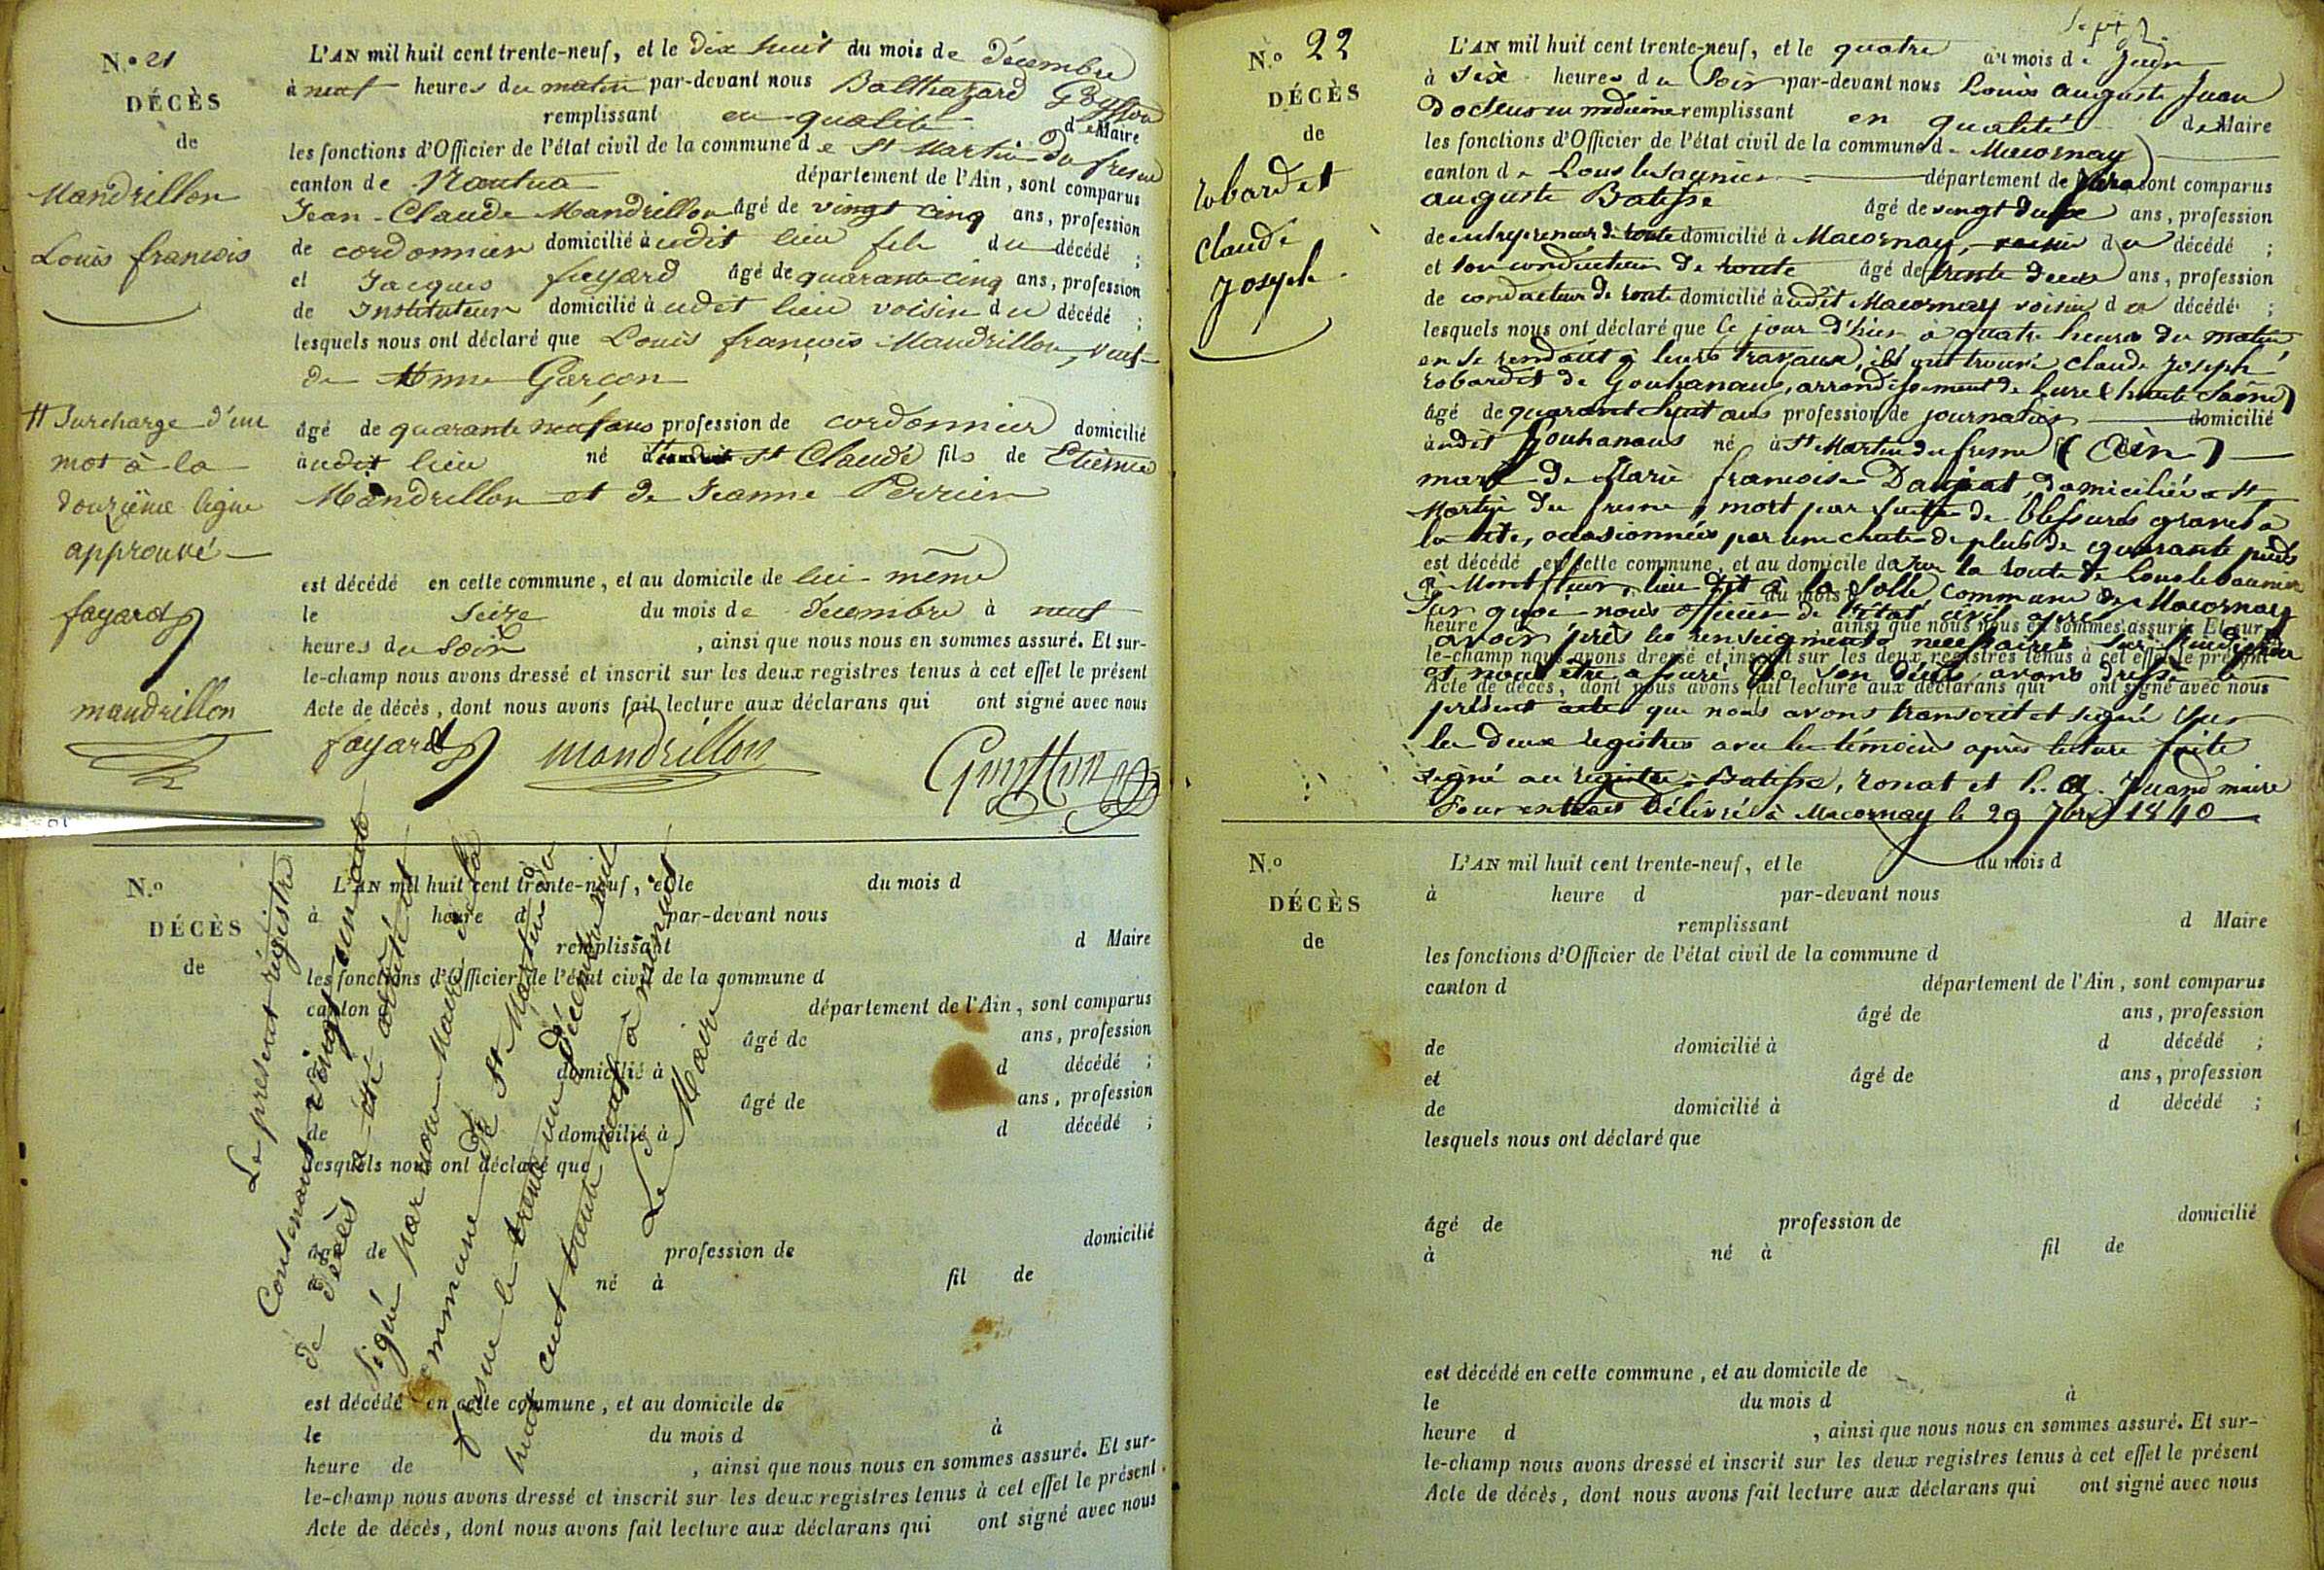 N.º 21
DÉCÈS
de
Mandrillon
Louis francois
L'AN mil huit cent trente-neuf, et le dix huit du mois de décembre
à neuf heures du matin par-devant nous Balthazard Guyttou
remplissant en qualité de Maire
les fonctions d'Officier de l'état civil de la commune de St Martin du fresne
canton de Nantua département de l'Ain, sont comparus
Jean-Claude Mandrillon âgé de vingt cinq ans, profession
de cordonnier domicilié à udit lieu fils du décédé ;
et Jacques fayard âgé de quarante cinq ans, profession
de Instituteur domicilié à udit lieu voisin du décédé ;
lesquels nous ont déclaré que Louis françois Mandrillon, veuf
de Garçon
âgé de quarante neuf ans profession de cordonnier domicilié
à udit lieu né St Claude fils de Etienne
Mandrillon et de Jeanne Perrier
est décédé en cette commune, et au domicile de lui-même
le Seize du mois de décembre à neuf
heures du Soir, ainsi que nous nous en sommes assuré. Et sur-
le-champ nous avons dressé et inscrit sur les deux registres tenus à cet effet le présent
Acte de décès, dont nous avons fait lecture aux déclarans qui ont signé avec nous
fayard mandrillon
Surcharge d'un
mot à la
douzième ligne
approuvé
fayard
mandrillon
N.º
DÉCÈS
de
L'AN mil huit cent trente-neuf, et le du mois d
à heure d par-devant nous
remplissant d Maire
les fonctions d'Officier de l'état civil de la commune d
canton d département de l'Ain, sont comparus
âgé de ans, profession
de domicilié à d décédé ;
âgé de ans, profession
de domicilié à d décédé ;
lesquels nous ont déclaré que
âgé de profession de domicilié
à né à fil de
est décédé en cette commune, et au domicile de
le du mois d à
heure de , ainsi que nous nous en sommes assuré. Et sur-
le-champ nous avons dressé et inscrit sur les deux registres tenus à cet effet le présent
Acte de décès, dont nous avons fait lecture aux déclarans qui ont signé avec nous
Le présent régistre
Contenant vingt un acte
de décès a été arrêté et
Signé par nous Maire de la
commune de St Martin du
fresne le trente un décembre mil
huit cent trente neuf à minuit
Le Maire
N.º 22
DÉCÈS
de
robardet
Claude
Joseph
L'AN mil huit cent trente-neuf, et le quatre du mois de Juin
à Six heures du Soir par-devant nous Louis auguste Juan
Docteur en medicine remplissant en qualité de Maire
les fonctions d'Officier de l'état civil de la commune de Macornay
canton de Lons le Saunier département de Jura sont comparus
auguste Batisse âgé de vingt ans, profession
de entrepreneur de route domicilié à Macornay, du décédé ;
et conducteur de route âgé de trente deux ans, profession
de conducteur de route domicilié à udit Macornay voisin du décédé ;
lesquels nous ont déclaré que le jour d'hier à quatre heures du matin
en se rendant à leurs travaux, ils ont trouvé Claude Joseph
robardet de Gouhenans, arrondissement de Lure (haute Saône)
âgé de quarant huit ans profession de journalier domicilié
à udit Gouhenans né à St Martin du fresne (Ain)
mari de Marie francoise domiciliée a St
Martin du fresne, mort par suite de blessures graves a
la tête, occasionnées par une chute de plus de quarante pieds
est décédé en cette commune, et au domicile de sur la route de Lons le Saunier
à Montfleur, lieu dit à la Salle commune de Macornay
du mois
Sur quoi nous officier de l'état civil apres
heure , ainsi que nous nous en sommes assuré. Et sur-
avoir pris les renseignements necessaires sur
le-champ nous avons dressé et inscrit sur les deux registres tenus à cet effet le présent
et nous être assuré de son décès, avons dressé le
Acte de décès, dont nous avons fait lecture aux déclarans qui ont signé avec nous
présent acte que nous avons transcrit et signé sur
les deux registres avec les témoins après lecture faite
signé au registre Batisse, ronat et L. A. Juand maire
Pour extrait délivré à Macornay le 29 7bre 1840
N.º
DÉCÈS
de
L'AN mil huit cent trente-neuf, et le du mois d
à heure d par-devant nous
remplissant d Maire
les fonctions d'Officier de l'état civil de la commune d
canton d département de l'Ain, sont comparus
âgé de ans, profession
de domicilié à d décédé ;
et âgé de ans, profession
de domicilié à d décédé ;
lesquels nous ont déclaré que
âgé de profession de domicilié
à né à fil de
est décédé en cette commune, et au domicile de
le du mois d à
heure d , ainsi que nous nous en sommes assuré. Et sur-
le-champ nous avons dressé et inscrit sur les deux registres tenus à cet effet le présent
Acte de décès, dont nous avons fait lecture aux déclarans qui ont signé avec nous